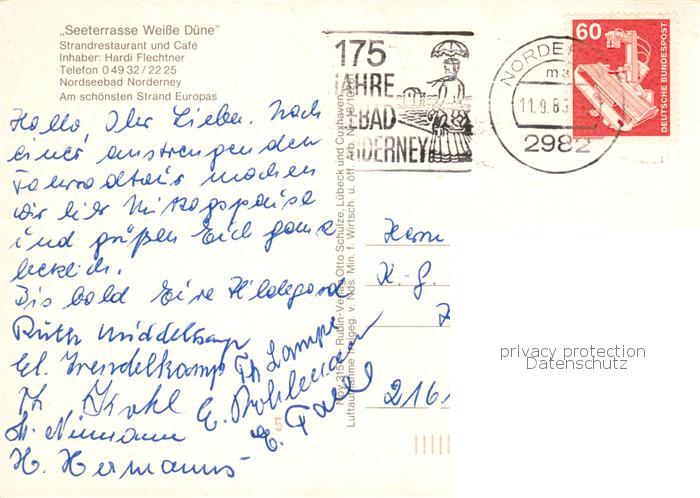 „Seeterrasse Weiße Düne"
Strandrestaurant und Café
Inhaber: Hardi Flechtner
Telefon 0 49 32 / 22 25
Nordseebad Norderney
Am schönsten Strand Europas
Hallo, Ihr Lieben. Nach
einer anstrengenden
Fahrradtour machen
wir hier Mittagspause
und grüßen Euch ganz
herzlich.
Bis bald Eure Hildegard
Ruth Middelkamp
El. Wendelkamp Th. Lampe
Th. Krohl E. Pohlmann
Niemann E.
H. Hermanns
175
JAHRE
BAD
DERNEY
NORDER
11.9.83
2982
60
DEUTSCHE BUNDESPOST
Rubin-Verlag Otto Schulze, Lübeck und Cuxhaven
Luftaufnahme freigeg. v. Nds. Min. f. Wirtsch. u. öff. Arb.
Herrn
K. G.
2161
5
privacy protection
Datenschutz